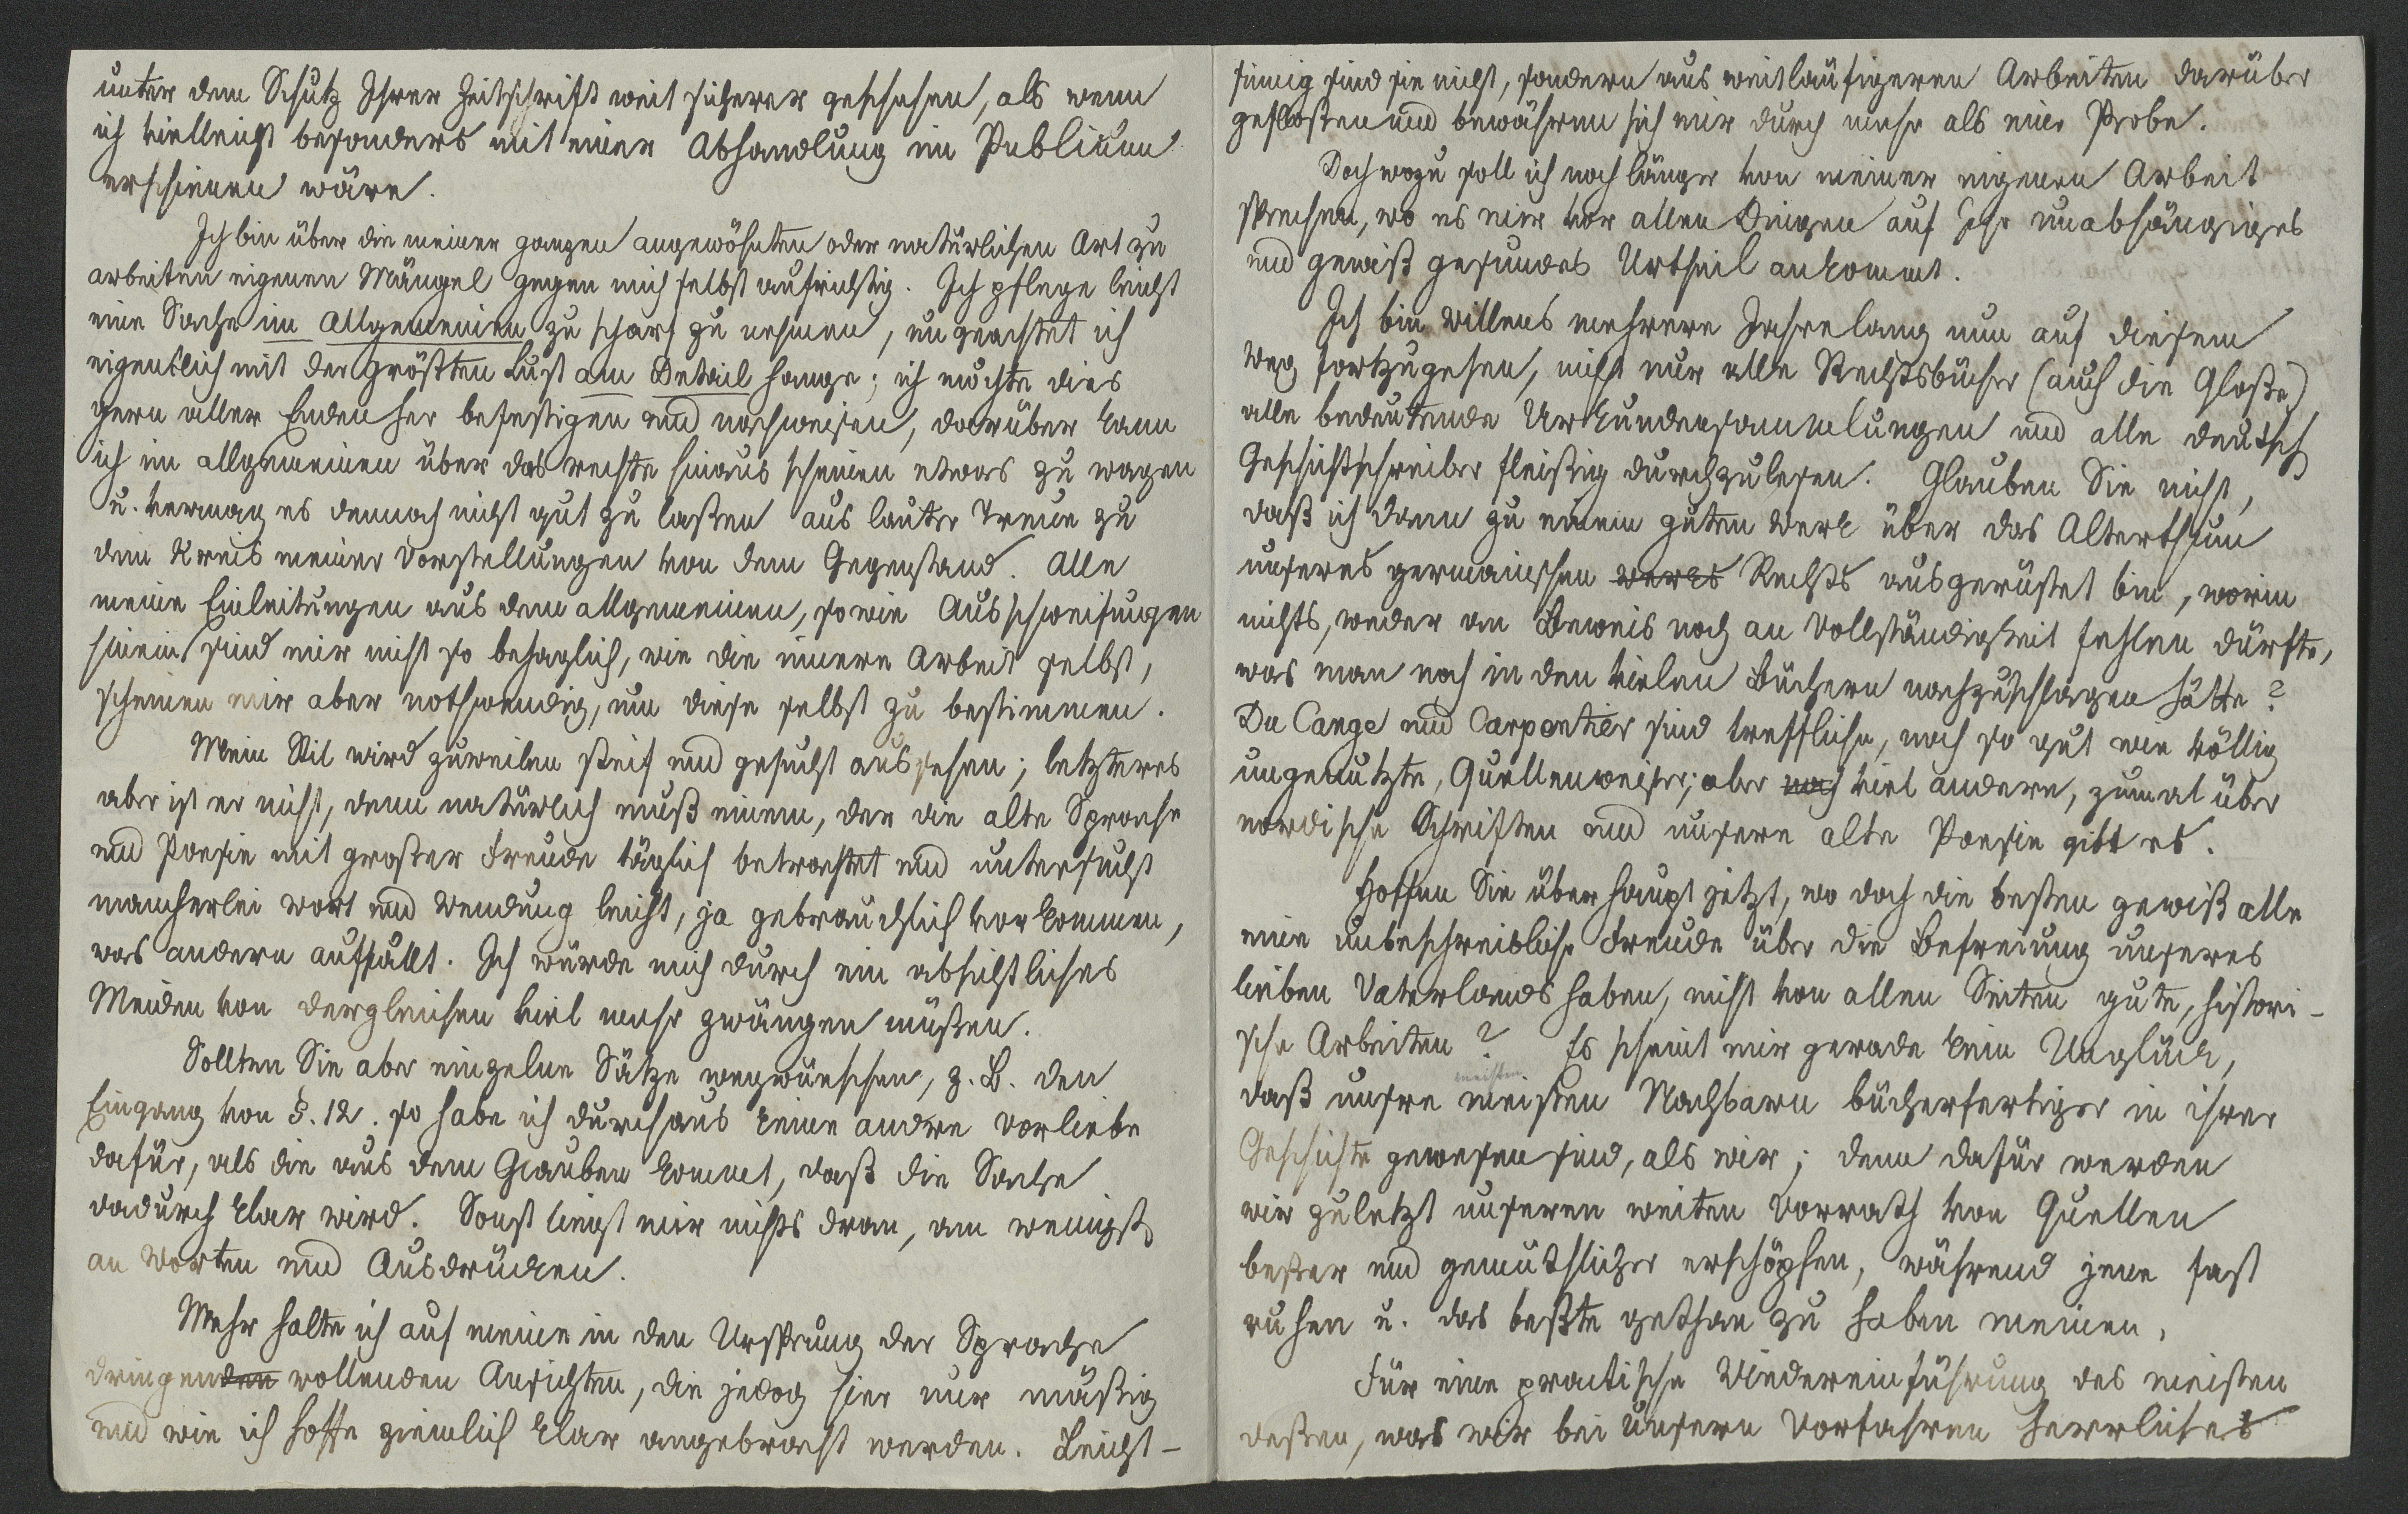 unter dem Schutz Ihrer Zeitschrift weit sicherer geschehen, als wenn
ich vielleicht besonders mit einer Abhandlung im Publicum
erschienen wäre.
Ich bin über die meiner ganzen angewöhnten oder natürlichen Art zu
arbeiten eigenen Mängel gegen mich selbst aufrichtig. Ich pflege leicht
eine Sache im Allgemeinen zu scharf zu nehmen, ungeachtet ich
eigentlich mit der größten Lust am Detail hange; ich möchte dies
gern aller Enden her befestigen und nachweisen, darüber kann
ich im allgemeinen über das rechte hinaus scheinen etwas zu wagen
u. vermag es dennoch nicht gut zu laßen aus lauter Treue zu
dem Kreis meiner Vorstellungen von dem Gegenstand. Alle
meine Einleitungen aus dem allgemeinen, so wie Ausschweifungen
hinein sind mir nicht so behaglich, wie die innere Arbeit selbst,
scheinen mir aber nothwendig, um diese selbst zu bestimmen.
Mein Stil wird zuweilen steif und gesucht aussehen; letzteres
aber ist er nicht, denn natürlich muß einem, der die alte Sprache
und Poesie mit großer Freude täglich betrachtet und untersucht
mancherlei Wort und Wendung leicht, ja gebrauchlich vorkommen,
was andern auffällt. Ich würde mich durch ein absichtliches
Meiden von dergleichen viel mehr zwängen müßen.
Sollten Sie aber einzelne Sätze wegwünschen, z. B. den
Eingang von §. 12. so habe ich durchaus keine andre Vorliebe
dafür, als die aus dem Glauben kommt, daß die Sache
dadurch klar wird. Sonst liegt mir nichts dran, am wenigst
an Worten und Ausdrücken.
Mehr halte ich auf meine in den Ursprung der Sprache
dringenden wollenden Ansichten, die jedoch hier nur mäßig
und wie ich hoffe ziemlich klar angebracht werden. Leicht-
sinnig sind sie nicht, sondern aus weitläufigeren Arbeiten darüber
gefloßen und bewähren sich mir durch mehr als eine Probe.
Doch wozu soll ich noch länger von meiner eigenen Arbeit
sprechen, wo es mir vor allen Dingen auf Ihr unabhängiges
und gewiß gesundes Urtheil ankommt.
Ich bin willens mehrere Jahre lang nun auf diesem
Weg fortzugehen, nicht nur alle Rechtsbücher (auch die Gloße)
alle bedeutende Urkundensammlungen und alle deutsch
Geschichtschreiber fleißig durchzulesen. Glauben Sie nicht,
daß ich dann zu einem guten Werk über das Alterthum
unseres germanischen werks Rechts ausgerüstet bin, worin
nichts, weder an Beweis noch an Vollständigkeit fehlen dürfte,
was man noch in den vielen Büchern nachzuschlagen hätte?
Du Cange und Carpentier sind treffliche, noch so gut wie völlig
ungenutzte, Quellenweiser; aber noch viel andere, zumal über
nordische Schriften und unsere alte Poesie gibt es.
Hoffen Sie überhaupt jetzt, wo doch die besten gewiß alle
eine unbeschreibliche Freude über die Befreiung unseres
lieben Vaterlands haben, nicht von allen Seiten gute, histori-
sche Arbeiten? Es scheint mir gerade kein Unglück,
meisten
daß unsre meisten Nachbarn bücherfertiger in ihrer
Geschichte gewesen sind, als wir; denn dafür werden
wir zuletzt unseren weiten Vorrath von Quellen
beßer und gemüthlicher erschöpfen, während jene fast
ruhen u. das beßte gethan zu haben meinen.
Für eine practische Wiedereinführung des meisten
deßen, was wir bei unsern Vorfahren herrliches